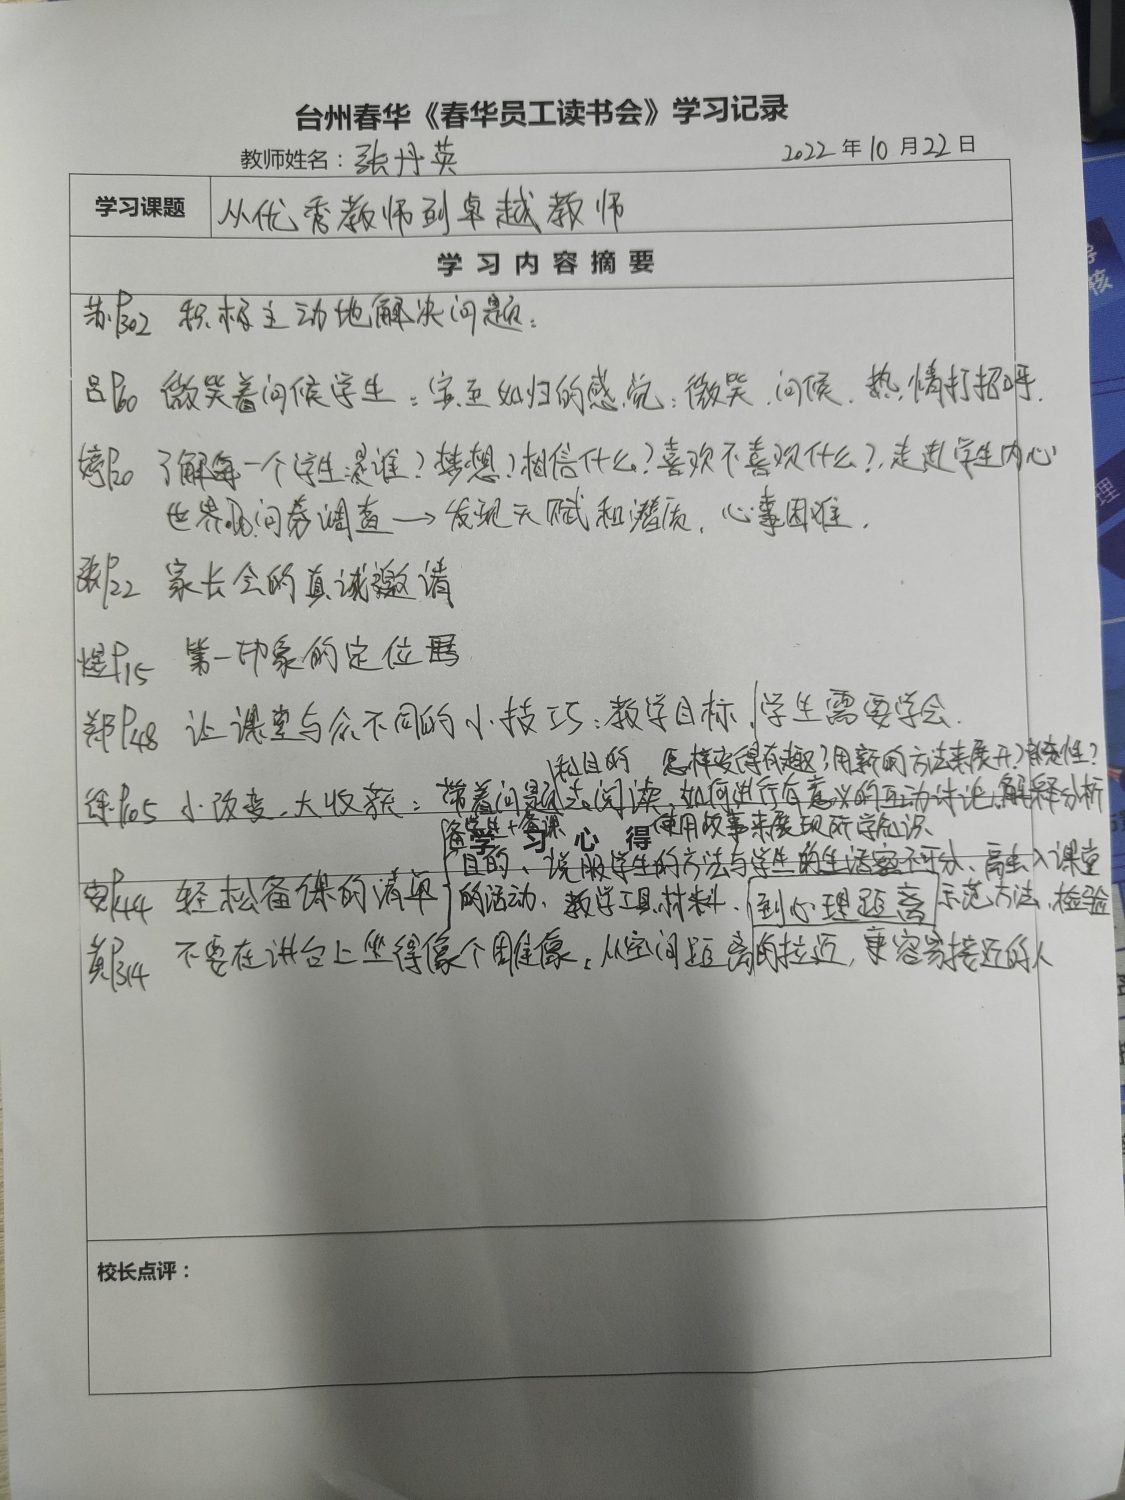 台州春华《春华员工读书会》学习记录
教师姓名：张丹英 2022年10月22日
学习课题 从优秀教师到卓越教师
学习内容摘要
苏P302 积极主动地解决问题：
吕P60 微笑着问候学生：宾至如归的感觉：微笑、问候、热情打招呼.
婷P20 了解每一个学生：是谁？梦想？相信什么？喜欢不喜欢什么？走进学生内心
世界 问券调查→发现天赋和潜质，心事困难.
张P22 家长会的真诚邀请
煜P15 第一印象的定位
郑P48 让课堂与众不同的小技巧：教学目标，学生需要学会.
和目的 怎样变得有趣？用新的方法来展开？ 性？
徐P105 小改变、大收获：带着问题去阅读，如何进行有意义的互动讨论、解释分析
备学生+备课 使用故事来展现所学知识
学习心得
目的、说服学生的方法与学生的生活密不可分、 课堂
安P44 轻松备课的清单 的活动、教学工具、材料、到心理距离 示范方法、检验
黄P314 不要在讲台上坐得像个困 像，从空间距离的拉近，更容易接近的人
校长点评：